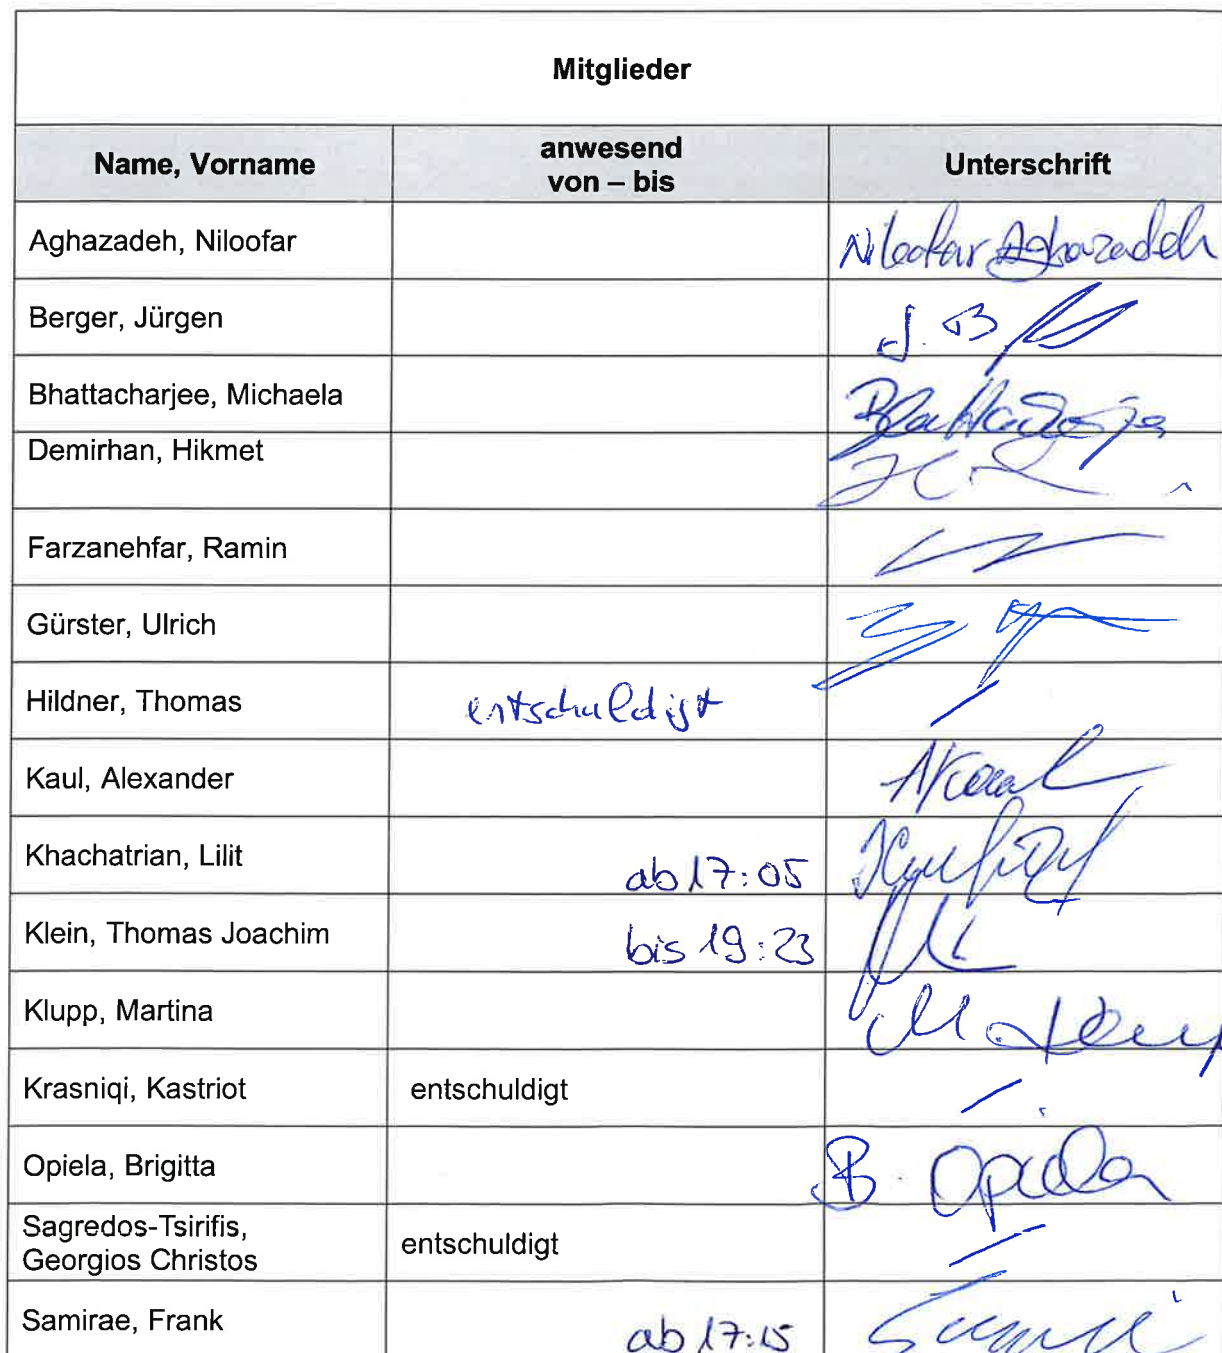 Mitglieder
Name, Vorname
anwesend
von – bis
Unterschrift
Aghazadeh, Niloofar
Niloofar Aghazadeh
Berger, Jürgen
J. B
Bhattacharjee, Michaela
Demirhan, Hikmet
Farzanehfar, Ramin
Gürster, Ulrich
Hildner, Thomas
entschuldigt
Kaul, Alexander
AKaul
Khachatrian, Lilit
ab 17:05
Klein, Thomas Joachim
bis 19:23
Klupp, Martina
Krasniqi, Kastriot
entschuldigt
Opiela, Brigitta
B. Opiela
Sagredos-Tsirifis,
Georgios Christos
entschuldigt
Samirae, Frank
ab 17:15